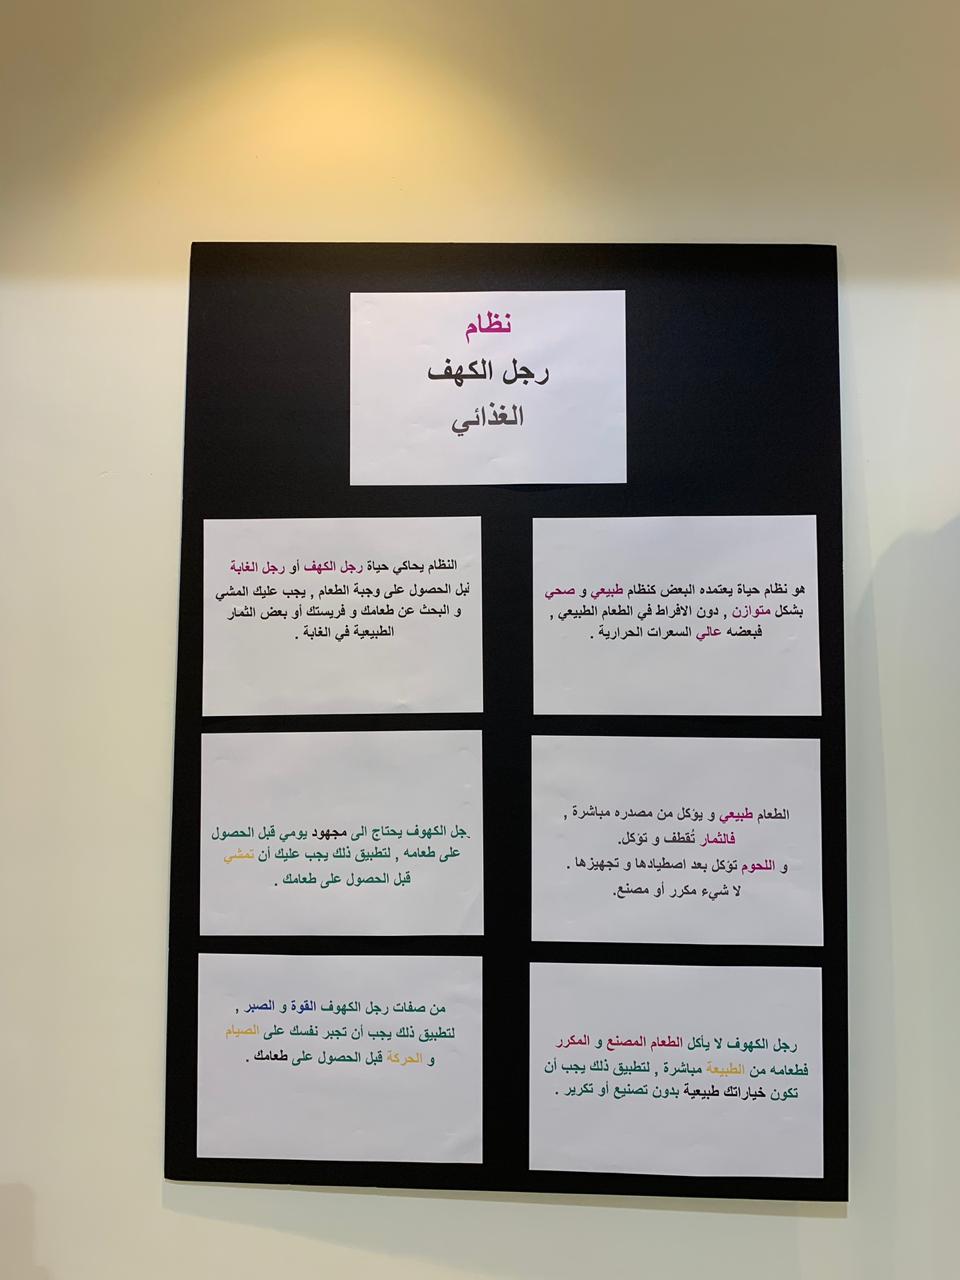 نظام
رجل الكهف
الغذائي
هو نظام حياة يعتمده البعض كنظام طبيعي و صحي
بشكل متوازن , دون الافراط في الطعام الطبيعي ,
فبعضه عالي السعرات الحرارية .
النظام يحاكي حياة رجل الكهف أو رجل الغابة
قبل الحصول على وجبة الطعام , يجب عليك المشي
و البحث عن طعامك و فريستك أو بعض الثمار
الطبيعية في الغابة .
الطعام طبيعي و يؤكل من مصدره مباشرة ,
فالثمار تُقطف و تؤكل.
و اللحوم تؤكل بعد اصطيادها و تجهيزها .
لا شيء مكرر أو مصنع.
رجل الكهوف يحتاج الى مجهود يومي قبل الحصول
على طعامه , لتطبيق ذلك يجب عليك أن تمشي
قبل الحصول على طعامك .
رجل الكهوف لا يأكل الطعام المصنع و المكرر
فطعامه من الطبيعة مباشرة , لتطبيق ذلك يجب أن
تكون خياراتك طبيعية بدون تصنيع أو تكرير .
من صفات رجل الكهوف القوة و الصبر ,
لتطبيق ذلك يجب أن تجبر نفسك على الصيام
و الحركة قبل الحصول على طعامك .